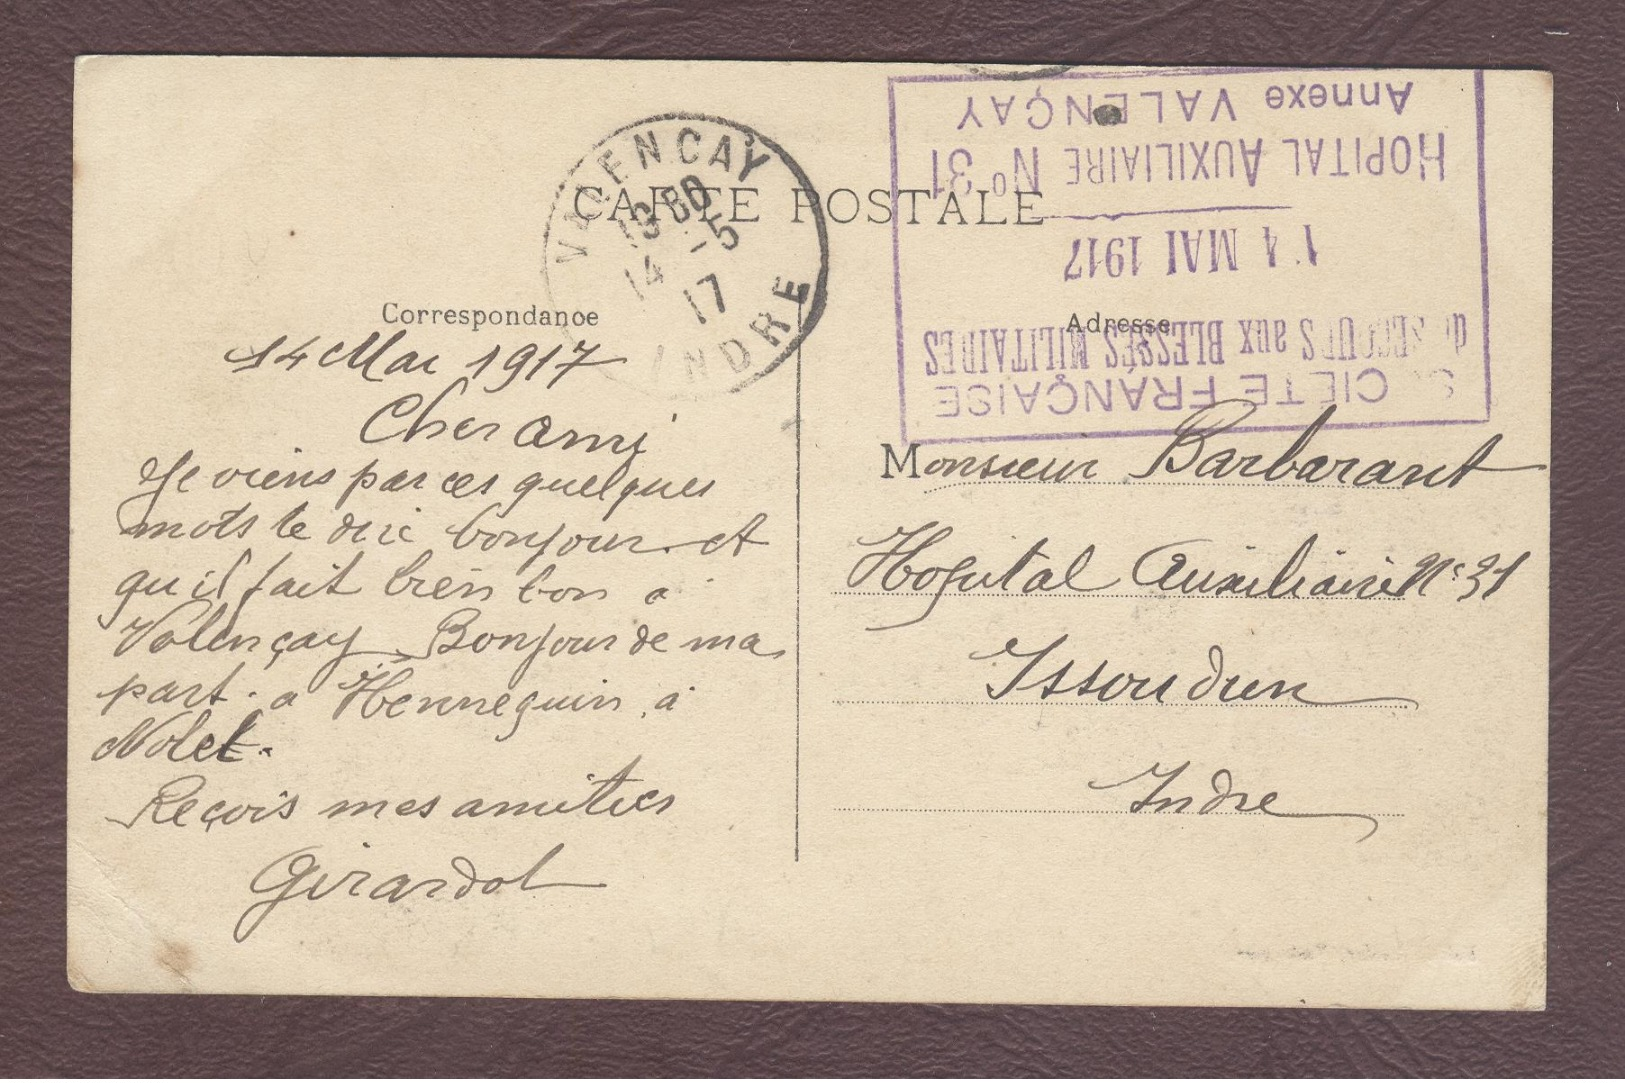 CARTE POSTALE
VALENCAY
INDRE
14 -5
17
HOPITAL AUXILIAIRE Nº 31
Annexe VALENÇAY
14 MAI 1917
SOCIETE FRANÇAISE
de SECOURS aux BLESSÉS MILITAIRES
Correspondance
14 Mai 1917
Cher ami
Je viens par ces quelques
mots te dire bonjour et
qu il fait bien bon a
Valençay. Bonjour de ma
part. a Hennequin, à
Nolet.
Reçois mes amities
Girardot
Adresse
Monsieur Barbarant
Hopital Auxiliaire Nº 31
Issoudun
Indre